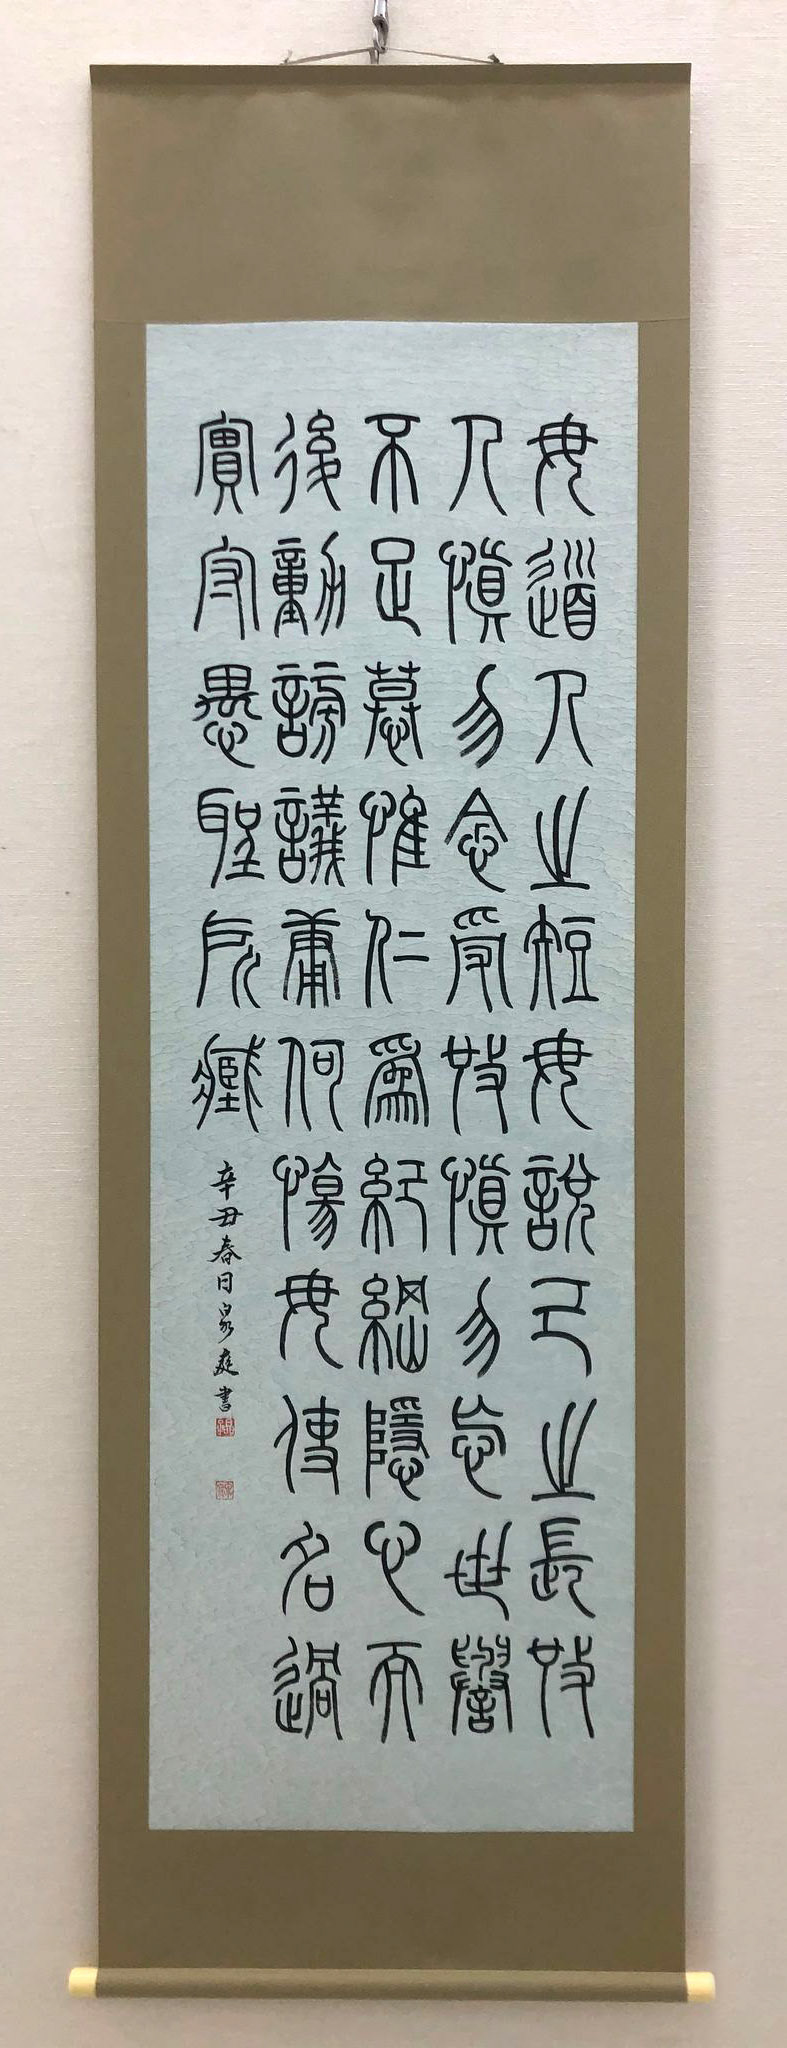 毋道人之短毋說己之長施
人慎勿念受施慎勿忘世譽
不足慕惟仁為紀綱隱心而
後動謗議庸何慯毋使名過
實守愚聖所臧
辛丑春日泉庭書